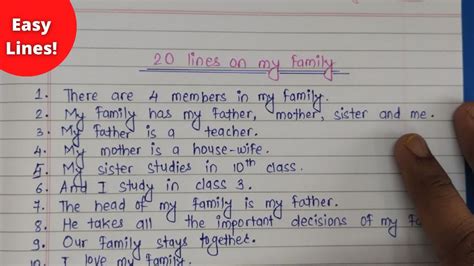 Easy
Lines!
20 lines on my family
1. There are 4 members in my family.
2. My family has my father, mother, sister and me.
3. My father is a teacher.
4. My mother is a house-wife.
5. My sister studies in 10th class.
6. And I study in class 3.
7. The head of my family is my father.
8. He takes all the important decisions of my fa
9. Our family stays together.
10. I love my family.